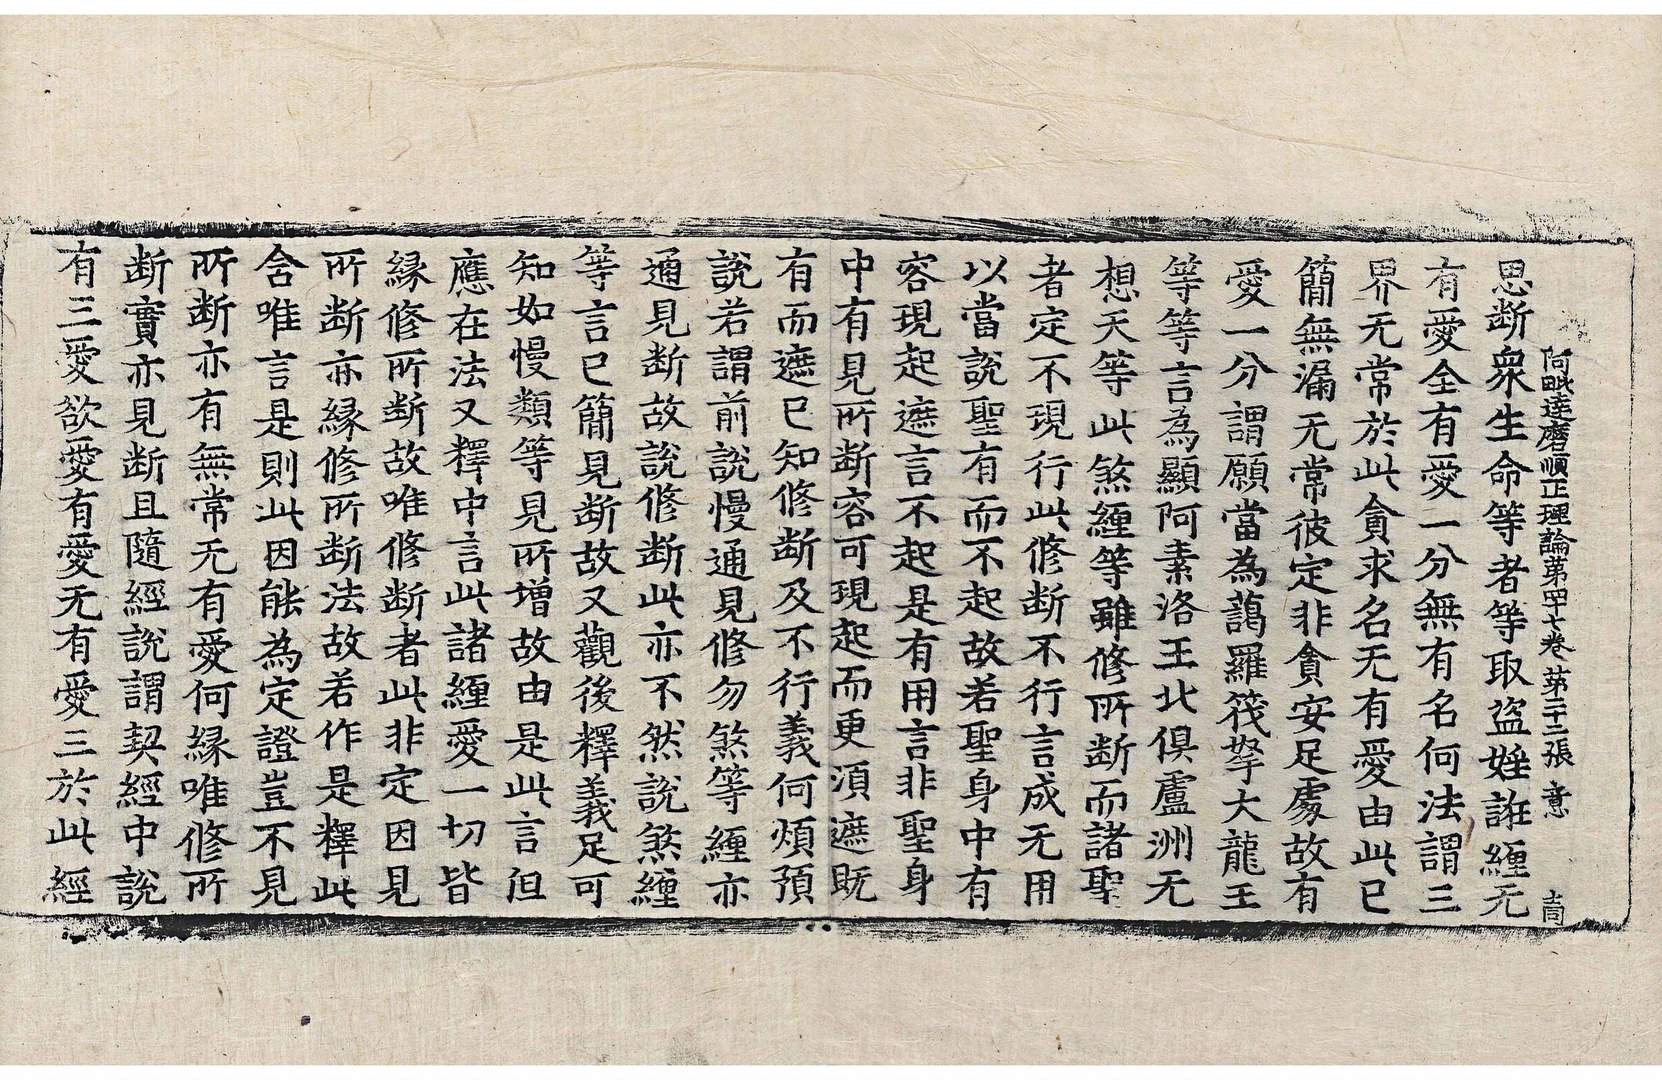 阿毗達磨順正理論第四十七卷 第二十三張 意
思断衆生命等者等取盗婬誑纏无
有愛全有愛一分無有名何法謂三
界无常於此貪求名无有愛由此已
簡無漏无常彼定非貪安足處故有
愛一分謂願當為藹羅筏拏大龍王
等等言為顯阿素洛王北俱盧洲无
想天等此煞纏等雖修所断而諸聖
者定不現行此修断不行言成无用
以當說聖有而不起故若聖身中有
容現起遮言不起是有用言非聖身
中有見所断容可現起而更湏遮既
有而遮已知修断及不行義何煩預
說若謂前說慢通見修勿煞等纏亦
通見断故說修断此亦不然說煞纏
等言已簡見断故又觀後釋義足可
知如慢類等見所增故由是此言但
應在法又釋中言此諸纏愛一切皆
縁修所断故唯修断者此非定因見
所断亦縁修所断法故若作是釋此
舍唯言是則此因能為定證豈不見
所断亦有無常无有愛何縁唯修所
断實亦見断且隨經說謂契經中說
有三愛欲愛有愛无有愛三於此經